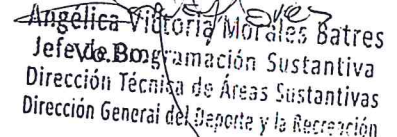 Angélica Victoria Morales Batres
Jefe de Programación Sustantiva
Vo.Bo.
Dirección Técnica de Áreas Sustantivas
Dirección General del Deporte y la Recreación